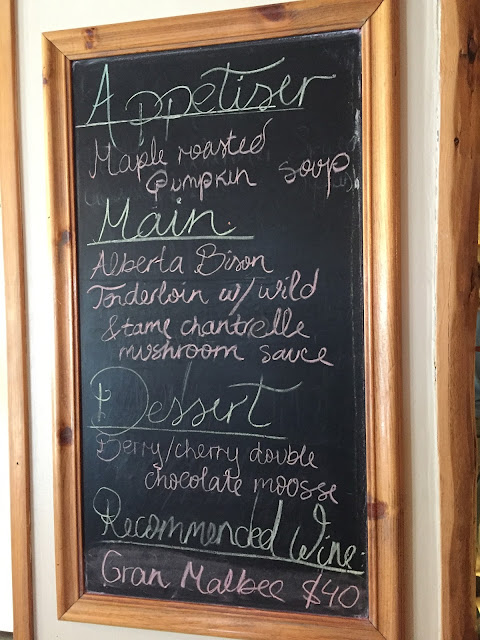 Appetiser
Maple roasted
Pumpkin soup
Main:
Alberta Bison
Tenderloin w/ wild
& tame chantrelle
mushroom sauce
Dessert
Berry/cherry double
chocolate moosse
Recommended Wine:
Gran Malbec $40